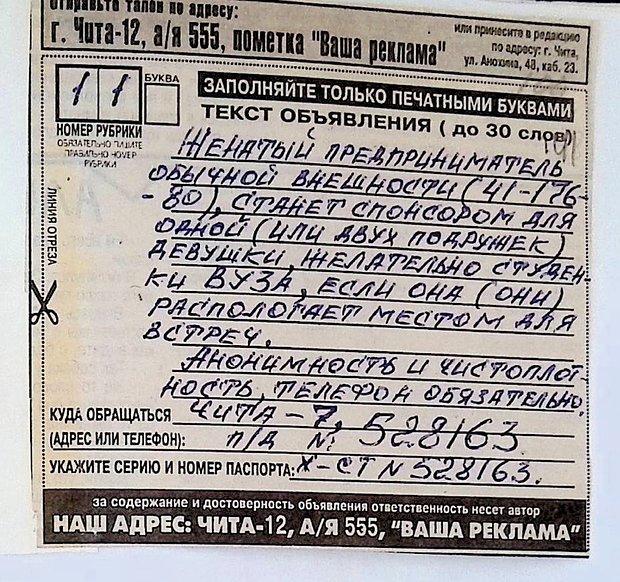 отправьте талон по адресу:
г. Чита-12, а/я 555, пометка "Ваша реклама"
или принесите в редакцию
по адресу: г. Чита,
ул. Анохина, 48, каб. 23.
11
БУКВА
НОМЕР РУБРИКИ
ОБЯЗАТЕЛЬНО ПИШИТЕ
ПРАВИЛЬНО НОМЕР
РУБРИКИ
ЛИНИЯ ОТРЕЗА
ЗАПОЛНЯЙТЕ ТОЛЬКО ПЕЧАТНЫМИ БУКВАМИ
ТЕКСТ ОБЪЯВЛЕНИЯ ( до 30 слов)
ЖЕНАТЫЙ ПРЕДПРИНИМАТЕЛЬ
ОБЫЧНОЙ ВНЕШНОСТИ (41-176-
-80), СТАНЕТ СПОНСОРОМ ДЛЯ
ОДНОЙ (ИЛИ ДВУХ ПОДРУЖЕК)
ДЕВУШКИ, ЖЕЛАТЕЛЬНО СТУДЕН-
КИ ВУЗА, ЕСЛИ ОНА (ОНИ)
РАСПОЛОГАЕТ МЕСТОМ ДЛЯ
ВСТРЕЧ.
АНОНИМНОСТЬ И ЧИСТОПЛОТ-
НОСТЬ, ТЕЛЕФОН ОБЯЗАТЕЛЬНО.
КУДА ОБРАЩАТЬСЯ ЧИТА-7,
(АДРЕС ИЛИ ТЕЛЕФОН): П/Д N. 528163
УКАЖИТЕ СЕРИЮ И НОМЕР ПАСПОРТА: X-СТ N 528163.
за содержание и достоверность объявления ответственность несет автор
НАШ АДРЕС: ЧИТА-12, А/Я 555, "ВАША РЕКЛАМА"